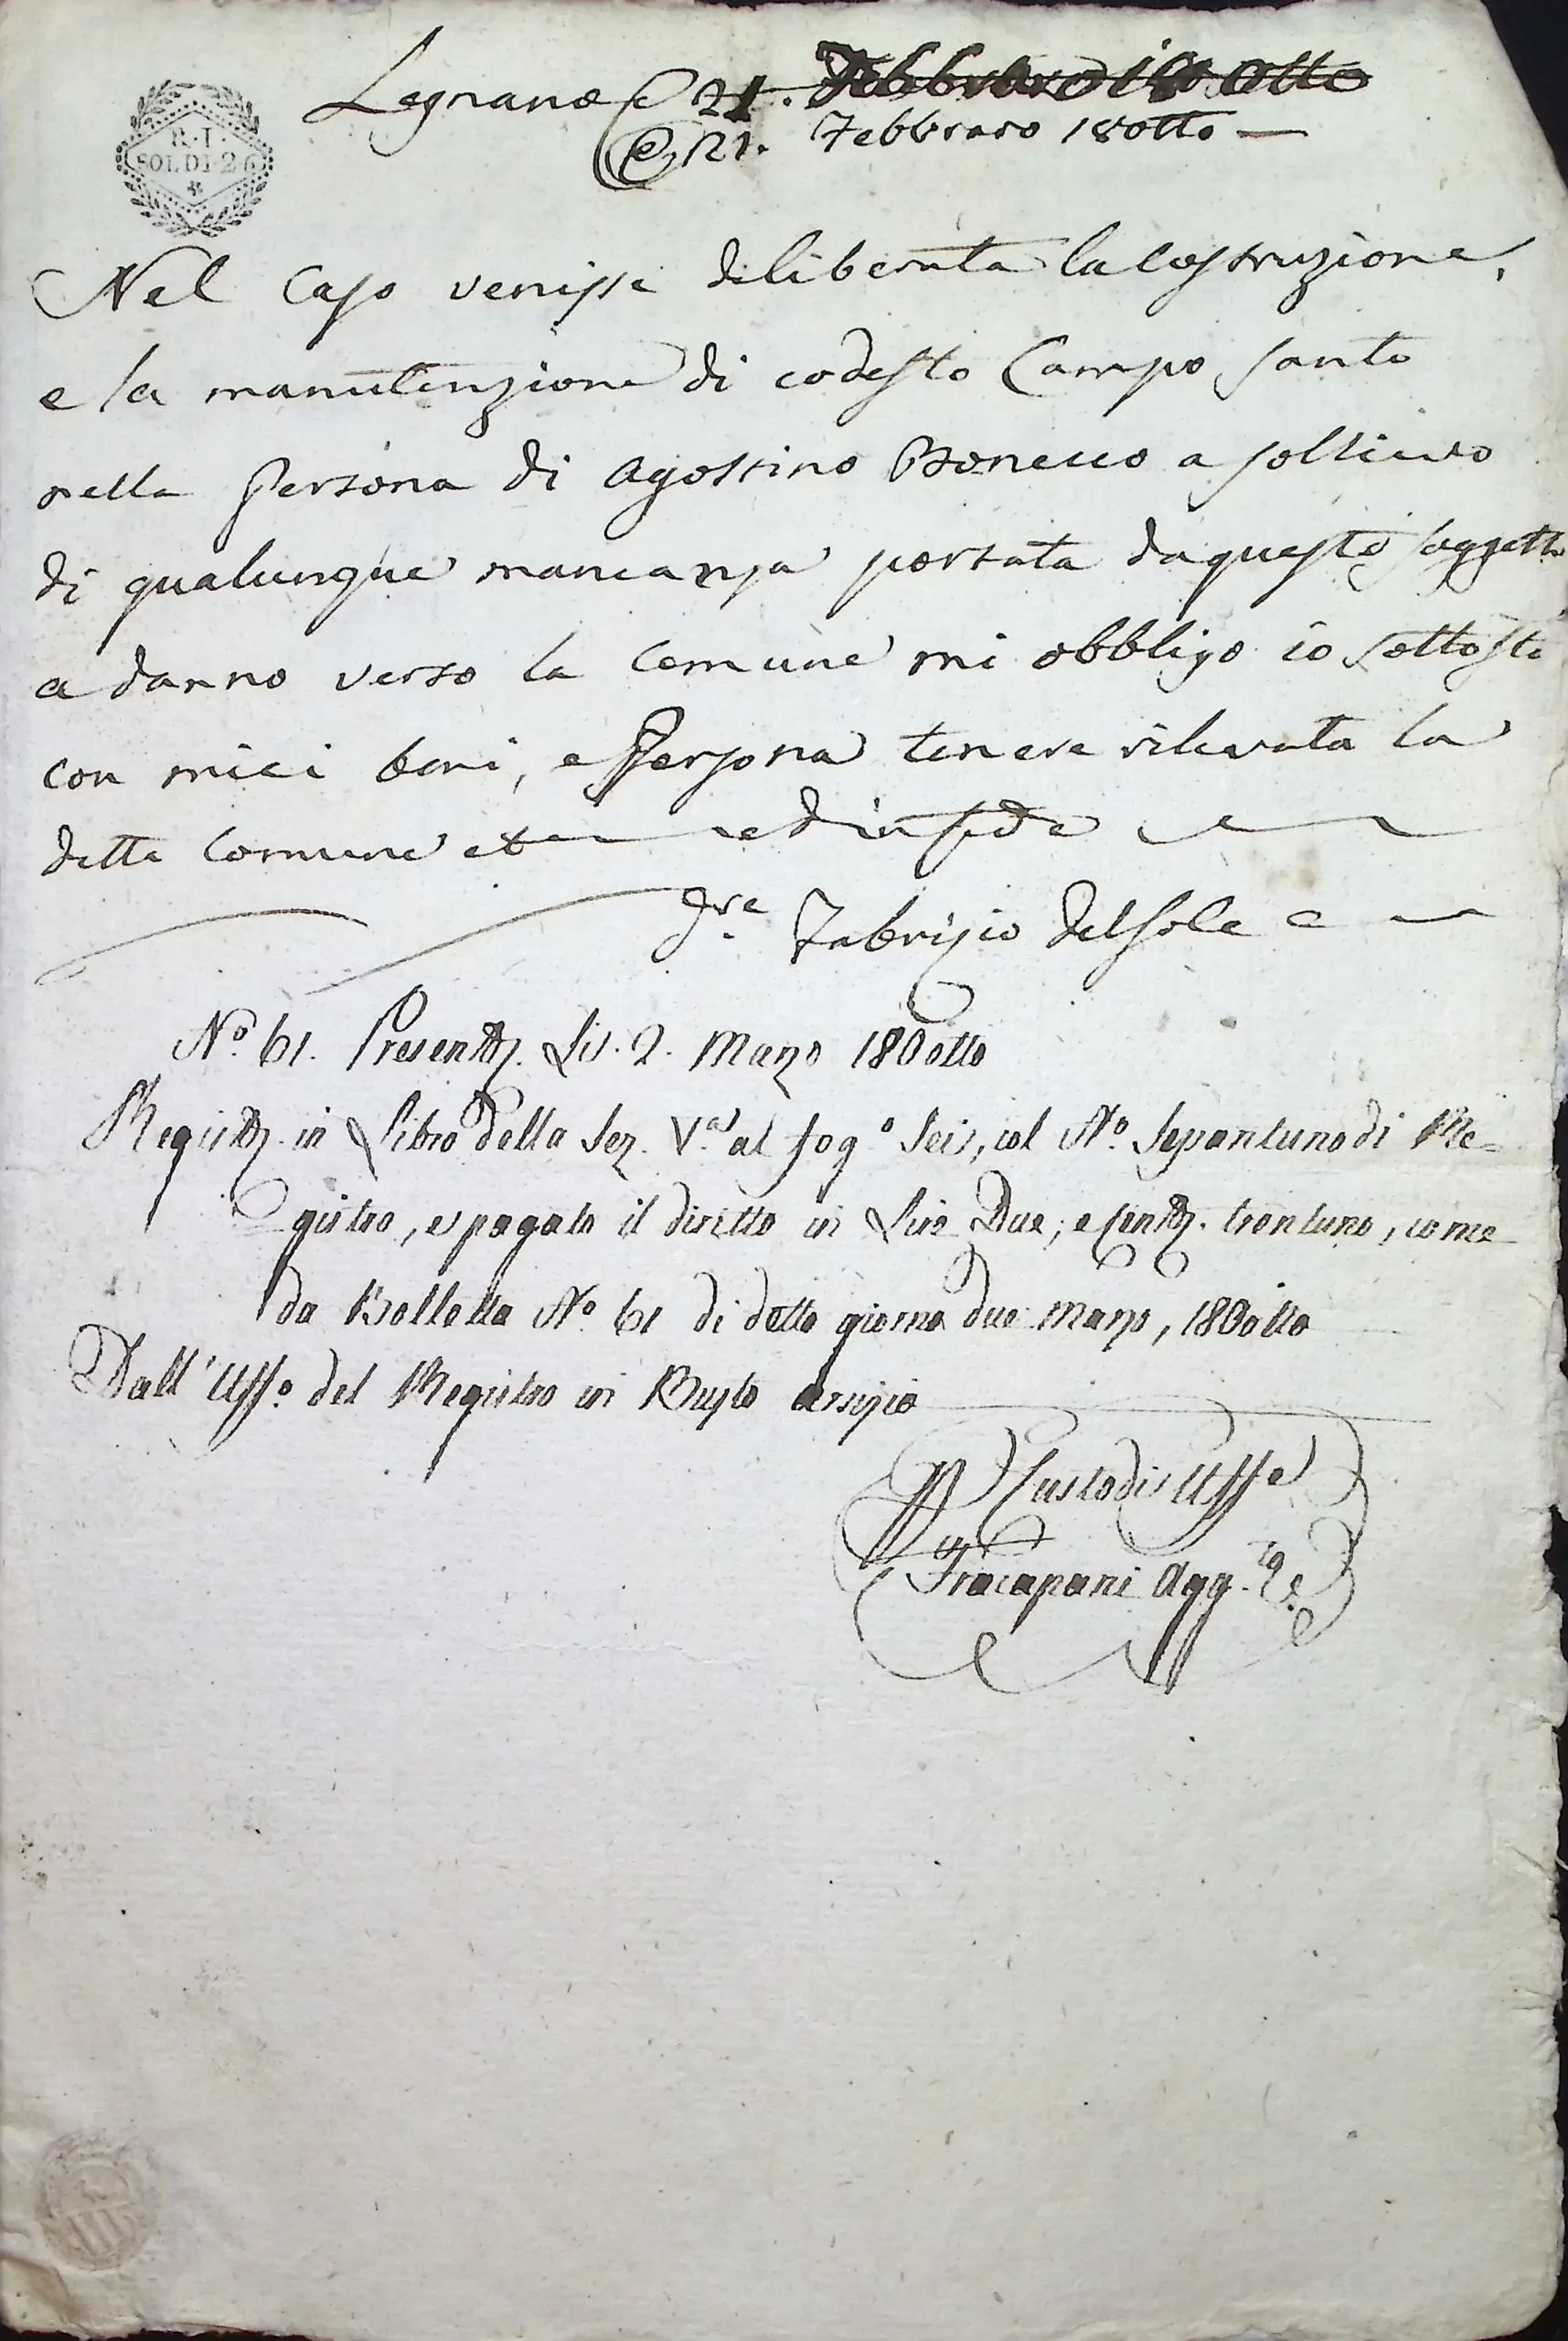 R. I.
SOLDI 26
Legnano 21.
21. Febbraro 18otto
Nel Caso venisse deliberata la Costruzione,
e la manutenzione di codesto Campo Santo
nella Persona di Agostino Bonecco a sollievo
di qualunque mancanza portata da questo soggetto
a danno verso la Comune mi obbligo io sottosto
con miei beni, e Persona tenere rilevata la
detta Comune ed in fede
Fabrizio Delsole
No. 61. Present. Li. 2. Marzo 180otto
Regist. in Libro della Sez. V.a al fog.o Sei, col No. Sepantuno di Re=
gistro, e pagato il diritto in Lire Due, e Cent. trentuno, come
da Bolletta No 61 di detto giorno due Marzo, 180otto
Dall'Uff.o del Registro in Busto Arsizio
Custodi Uff.e
Fracapani Agg.